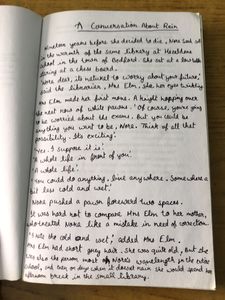 A Conversation About Rain
Nineteen years before she decided to die, Nora Seed sat
in the warmth of the small library at Hazeldene
School in the town of Bedford. She sat at a low table
staring at a chess board.
'Nora dear, it's natural to worry about your future,'
said the librarian, Mrs Elm, her eyes twinkling
Mrs Elm made her first move. A knight hopping over
the neat row of white pawns. 'Of course, you're going
to be worried about the exams. But you could be
anything you want to be, Nora. Think of all that
possibility. It's exciting.'
'Yes. I suppose it is.'
'A whole life in front of you.'
'A whole life.'
'You could do anything, live anywhere. Somewhere a
bit less cold and wet.'
Nora pushed a pawn forward two spaces.
It was hard not to compare Mrs Elm to her mother,
who treated Nora like a mistake in need of correction.
'I hate the cold and wet,' added Mrs Elm.
Mrs Elm had short grey hair. She was quite old, but she
was also the person most on Nora's wavelength in the entire
school, and even on days when it doesn't rain she would spend her
afternoon break in the small library.